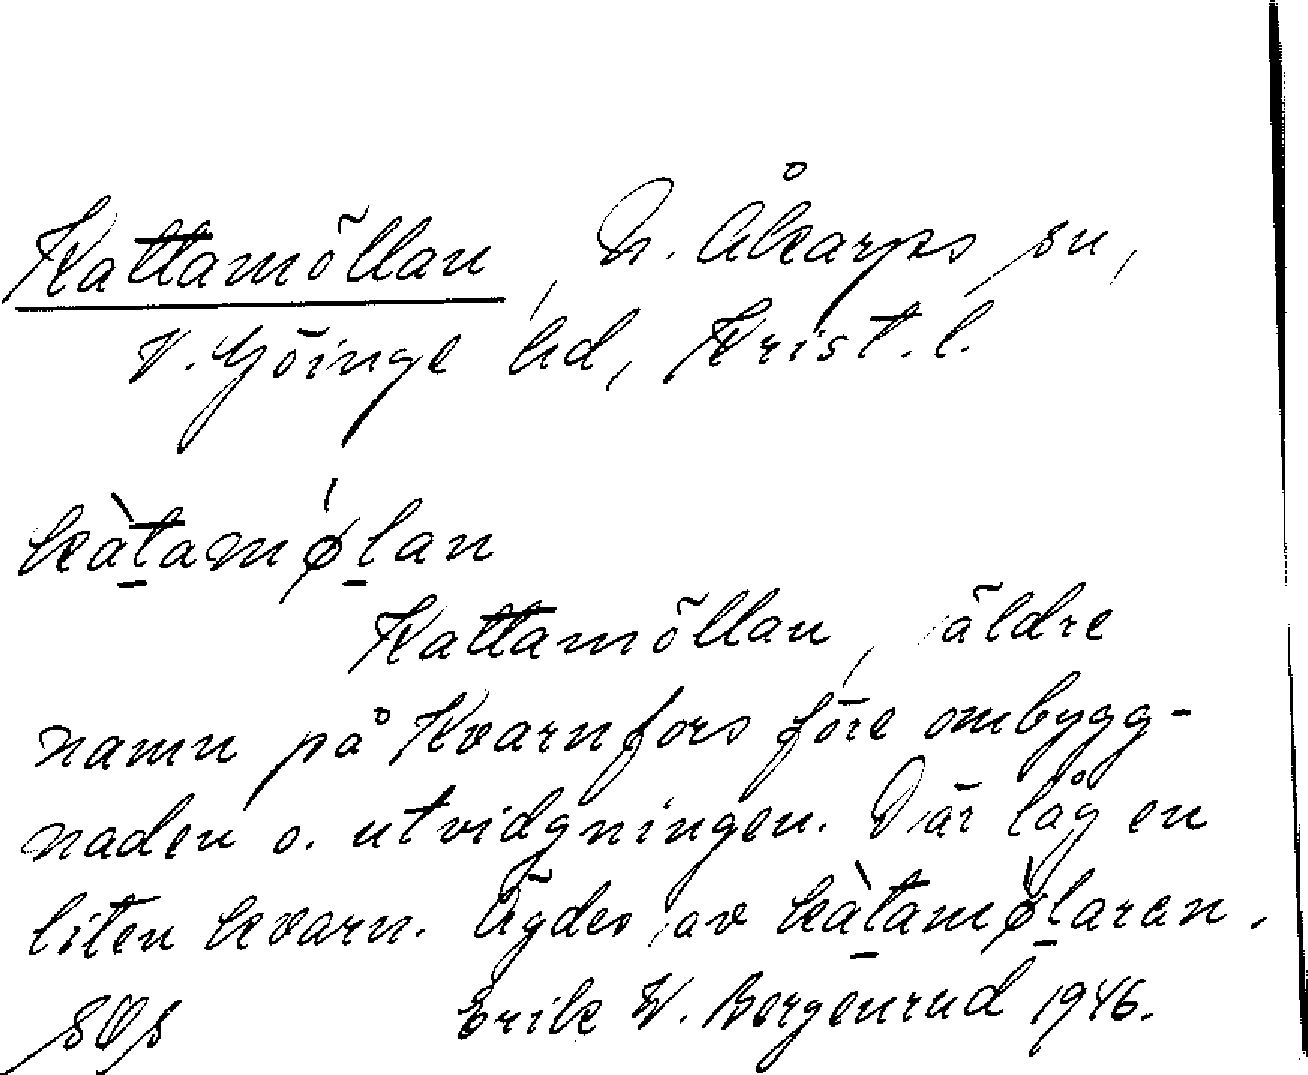 Kattamöllan, N. Åkarps sn,
V. Göinge hd, Krist. l.
kàt̲amǿl̲an
Kattamöllan, äldre
namn på Kvarnfors före ombygg-
naden o. utvidgningen. Där låg en
liten kvarn. Ägdes av kàt̲amǿl̲aren.
Erik W. Bergenrud 1946.